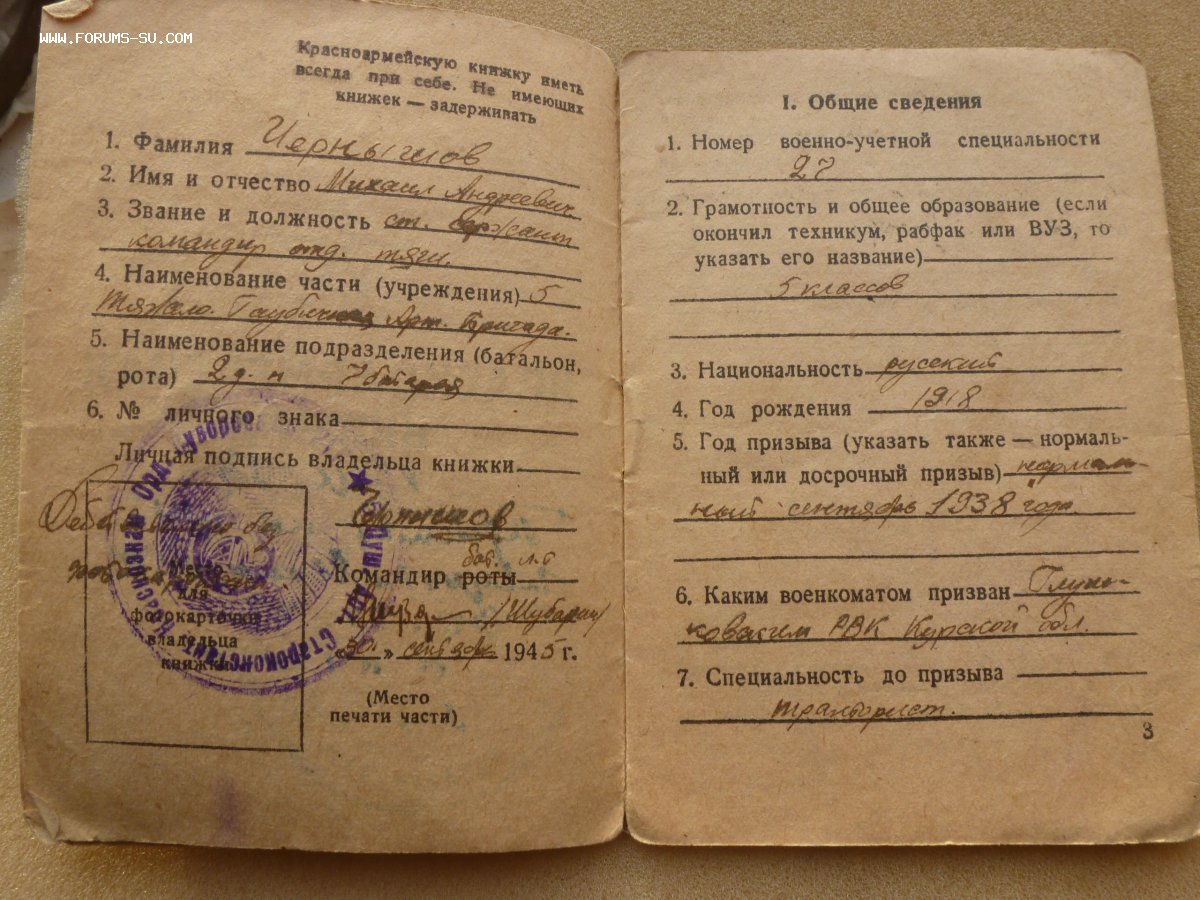 WWW.FORUMS-SU.COM
Красноармейскую книжку иметь
всегда при себе. Не имеющих
книжек — задерживать
1. Фамилия Чернышов
2. Имя и отчество Михаил Андреевич
3. Звание и должность ст. сержант
командир отд. тяги.
4. Наименование части (учреждения) 5
Тяжело. Гаубичная Арт. Бригада.
5. Наименование подразделения (батальон,
рота) 2 д-н 7 батарея
6. № личного знака
Личная подпись владельца книжки
Чернышов
Командир роты бат. л-т
/Шубарин/
«30» сентября 1945 г.
(Место
печати части)
Место
для
фотокарточки
владельца
книжки
I. Общие сведения
1. Номер военно-учетной специальности
27
2. Грамотность и общее образование (если
окончил техникум, рабфак или ВУЗ, то
указать его название)
5 классов
3. Национальность русский
4. Год рождения 1918
5. Год призыва (указать также — нормаль-
ный или досрочный призыв) нормаль-
ный сентябрь 1938 года
6. Каким военкоматом призван
РВК Курской обл.
7. Специальность до призыва
тракторист.
3